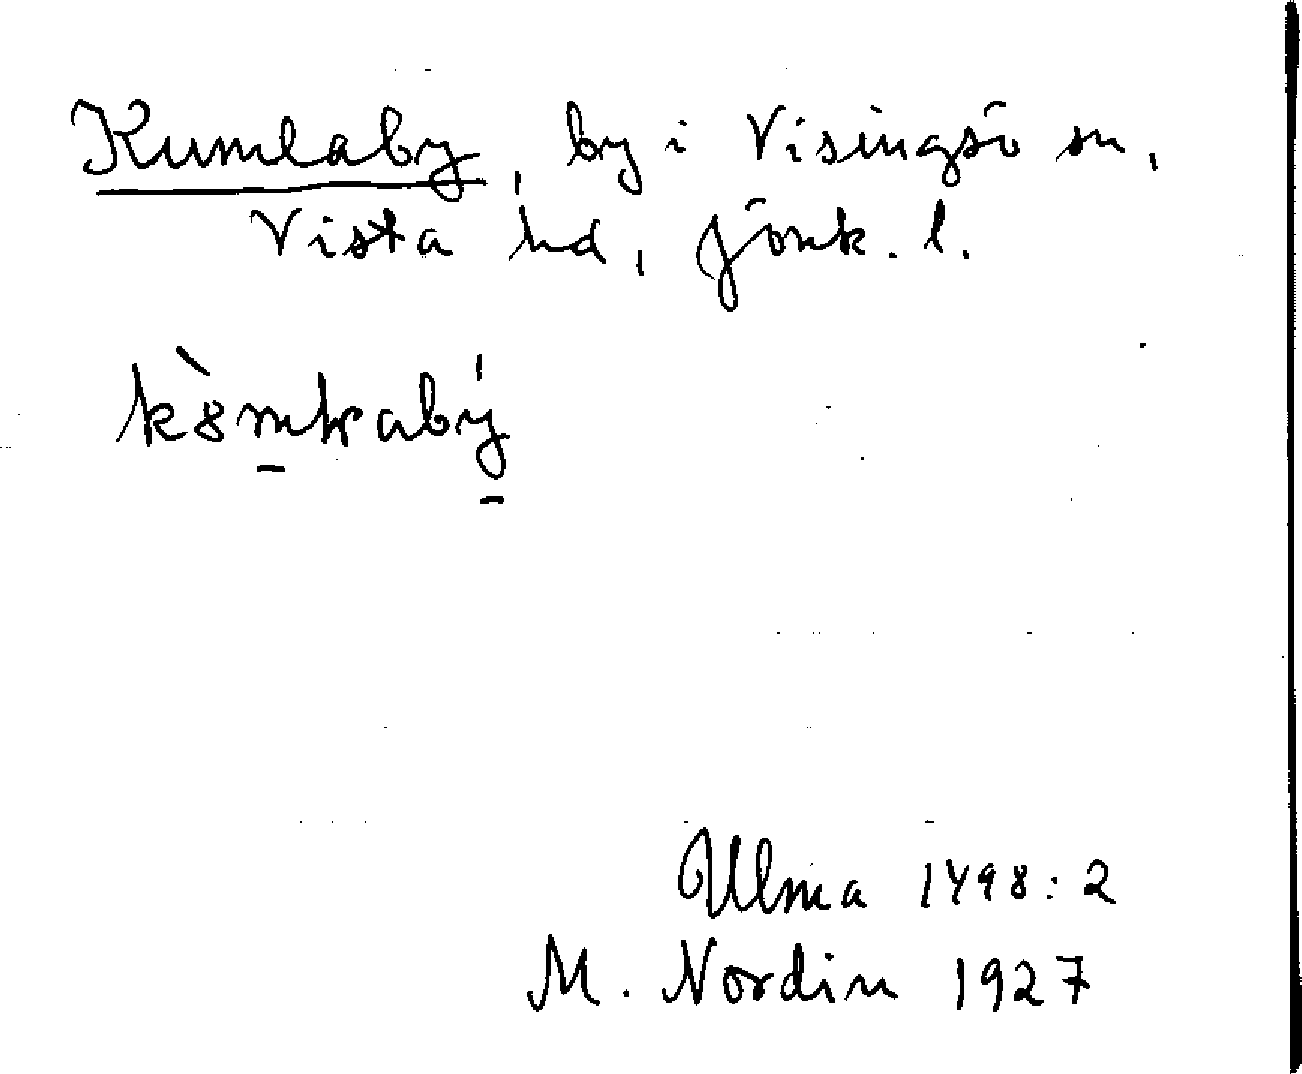 Kumlaby, by i Visingsö sn,
Vista hd, Jönk. l.
Ulma 1498:2
M. Nordin 1927